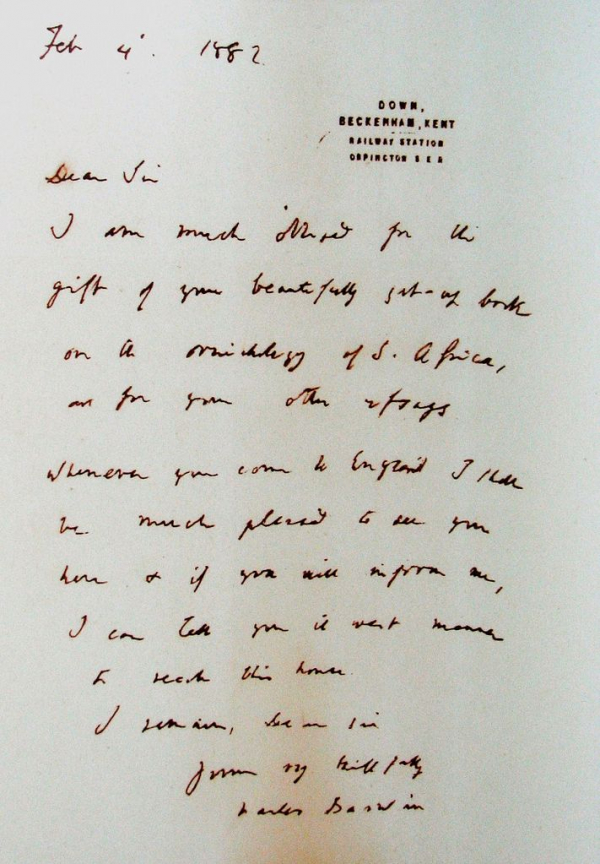 Feb 4th. 1882
DOWN,
BECKENHAM, KENT
RAILWAY STATION
ORPINGTON S E R
Dear Sir
I am much obliged for the
gift of your beautifully got-up book
on the ornithology of S. Africa,
and for your other essays
Whenever you come to England I shall
be much pleased to see you
here & if you will inform me,
I can tell you best manner
to reach this house.
I remain, Dear Sir
Yours very faithfully
Charles Darwin